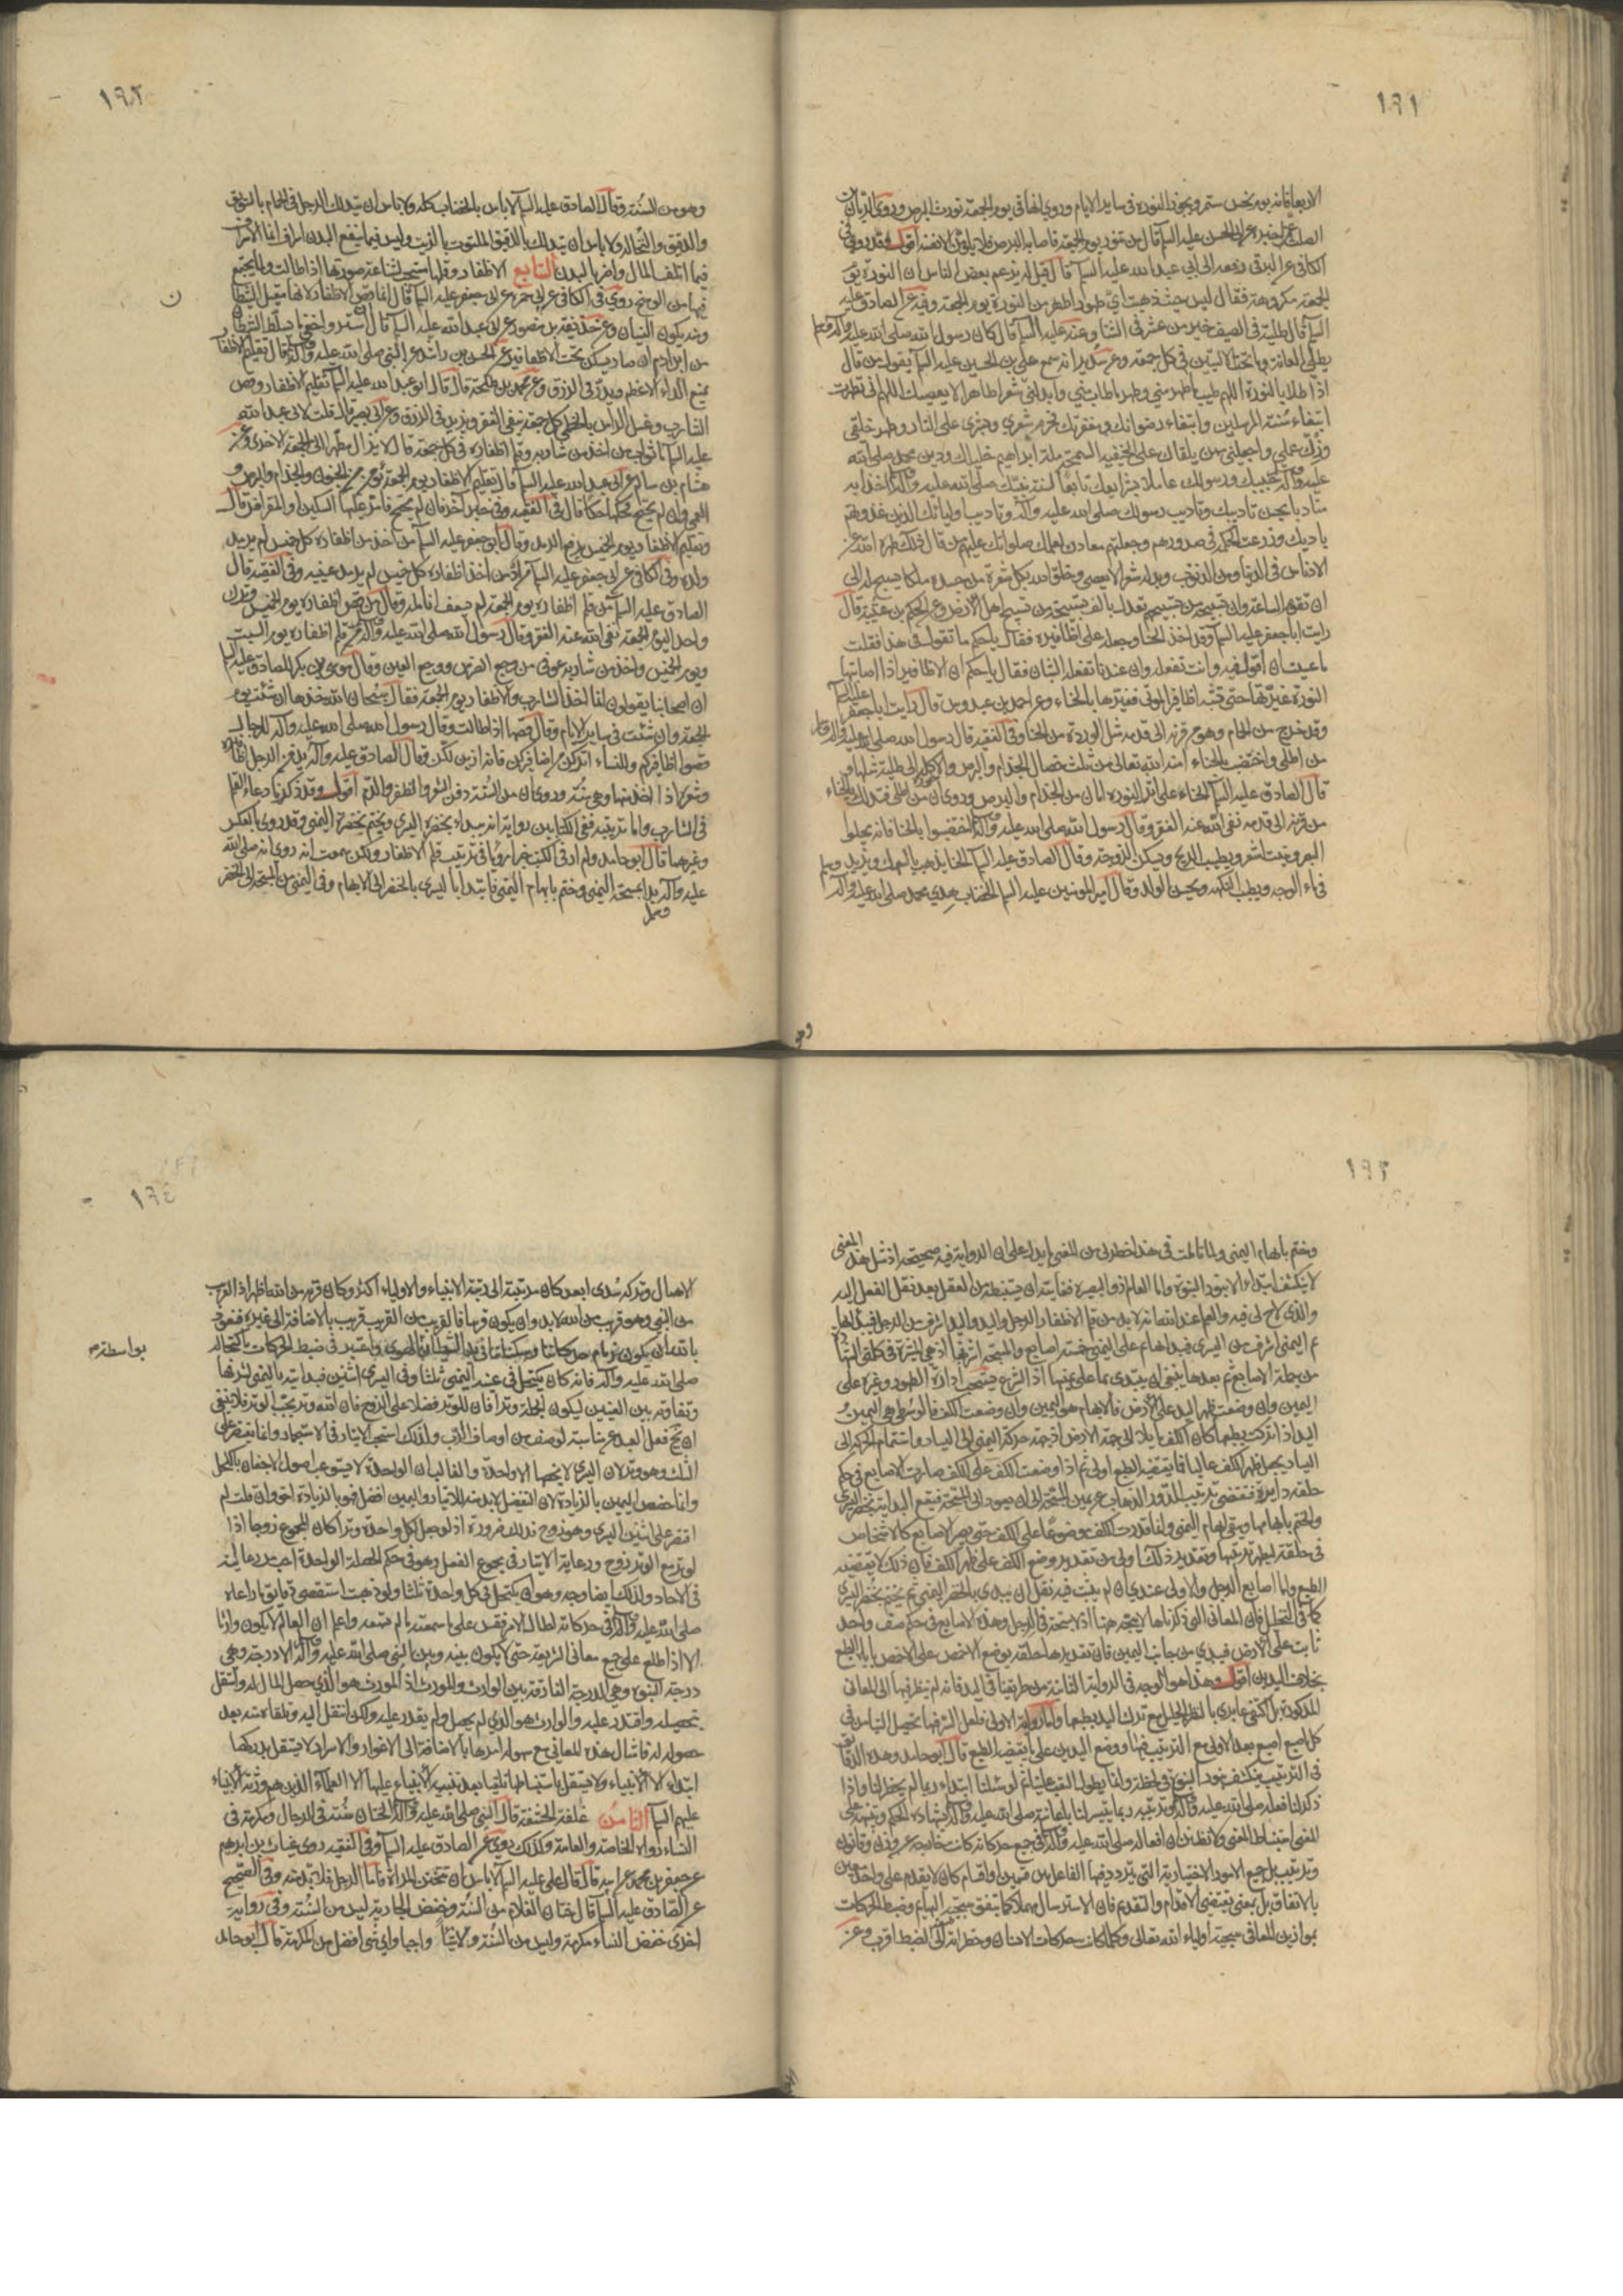 ١٩١
الاربعاء فانه يوم نحس مستمر ويجوز النورة في ساير الايام وروي انها في يوم الجمعة تورث البرص وروى الريان بن
الصلت عمن اخبره عن ابي الحسن عليه السلم قال من تنور يوم الجمعة فاصابه البرص فلا يلومن الا نفسه اقول وقد روي في
الكافي عن البرقي رفعه الى ابي عبد الله عليه السلم قال قيل له يزعم بعض الناس ان النورة يوم
الجمعة مكروهة فقال ليس حيث ذهبت اي طهور اطهر من النورة يوم الجمعة وفيه عن الصادق عليه
السلم قال طلية في الصيف خير من عشر في الشتاء وعنه عليه السلم قال كان رسول الله صلى الله عليه وآله وسلم
يطلي العانة وما تحت الاليتين في كل جمعة وعن سدير انه سمع علي بن الحسين عليه السلم يقول من قال
اذا اطلى بالنورة اللهم طيب ما طهر مني وطهر ما طاب مني وابدلني شعرا طاهرا لا يعصيك اللهم اني تطهرت
ابتغاء سنة المرسلين وابتغاء رضوانك ومغفرتك فحرم شعري وبشري على النار وطهر خلقي
وزك عملي واجعلني ممن يلقاك على الحنيفية السمحة ملة ابراهيم خليلك ودين محمد صلى الله
عليه وآله حبيبك ورسولك عاملا بشرايعك تابعا لسنة نبيك صلى الله عليه وآله اخذا به
متادبا بحسن تاديبك وتاديب رسولك صلى الله عليه وآله وتاديب اوليائك الذين غذوتهم
بادبك وزرعت الحكمة في صدورهم وجعلتهم معادن لعلمك صلواتك عليهم من قال ذلك طهره الله عز
الادناس في الدنيا ومن الذنوب وبدله شعرا لا يعصي وخلق الله بكل شعرة من جسده ملكا يسبح له الى
ان تقوم الساعة وان تسبيحة من تسبيحهم تعدل بالف تسبيحة من تسبيح اهل الارض وعن الحكم بن عتيبة قال
رايت ابا جعفر عليه السلم وقد اخذ الحنا وجعله على اظافيره فقال يا حكم ما تقول في هذا فقلت
ما عسيت ان اقول فيه وانت تفعله وان عندنا تفعله الشبان فقال يا حكم ان الاظافير اذا اصابتها
النورة غيرتها حتى تشبه اظافير الموتى فغيرها بالحناء وعن احمد بن عبدوس قال رايت ابا جعفر عليه السلم
وقد خرج من الحمام وهو من قرنه الى قدمه مثل الوردة من الحنا وفي الفقيه قال رسول الله صلى الله عليه وآله وسلم
من اطلى واختضب بالحناء امنه الله تعالى من ثلث خصال الجذام والبرص والاكلة الى طلية مثلها و
قال الصادق عليه السلم الحناء على اثر النورة امان من الجذام والبرص وروي ان من اطلى فتدلك بالحناء
من قرنه الى قدمه نفى الله عنه الفقر وقال رسول الله صلى الله عليه وآله اختضبوا بالحنا فانه يجلوا
البصر وينبت الشعر ويطيب الريح ويسكن الزوجة وقال الصادق عليه السلم الحنا يذهب بالسهك ويزيد
في ماء الوجه ويطيب النكهة ويحسن الولد وقال امير المومنين عليه السلم الخضاب هدي محمد صلى الله عليه وآله
١٩٢
وهو من السنة وقال الصادق عليه السلم لا باس بالخضاب كله ولا باس ان يتدلك الرجل في الحمام بالسويق
والدقيق والنخالة ولا باس ان يتدلك بالدقيق الملتوت بالزيت وليس فيما ينفع البدن اسراف انما الاسراف
فيما اتلف المال واضر بالبدن السابع الاظفار وقلمها مستحب لشناعة صورتها اذا طالت ولما يجتمع
فيها من الوسخ روي في الكافي عن ابي حمزة عن ابي جعفر عليه السلم قال انما قص الاظفار لانها مقيل الشيطان
ومنه يكون النسيان وعن حذيفة بن منصور عن ابي عبد الله عليه السلم قال ان استر واخفى ما يسلط الشيطان
من ابن ادم ان صار يسكن تحت الاظافير وعن الحسن بن راشد عن النبي صلى الله عليه وآله قال تقليم الاظفار
يمنع الداء الاعظم ويدر في الرزق وعن محمد بن طلحة قال قال ابو عبد الله عليه السلم تقليم الاظفار وقص
الشارب وغسل الراس بالخطمي كل جمعة ينفي الفقر ويزيد في الرزق وعن ابي بصير قال قلت لابي عبد الله
عليه السلم ما ثواب من اخذ من شاربه وقلم اظفاره في كل جمعة قال لا يزال مطهرا الى الجمعة الاخرى وعن
هشام بن سالم عن ابي عبد الله عليه السلم قال تقليم الاظفار يوم الجمعة يؤمن من الجنون والجذام والبرص و
العمى وان لم يحتج فحكها حكا قال في الفقيه وفي خبر آخر فان لم يحتج فامر عليها السكين او المقراض وقال
وتقليم الاظفار يوم الخميس يدفع الرمد وقال ابو جعفر عليه السلم من اخذ من اظفاره كل خميس لم يرمد
ولده وفي الكافي عن ابي جعفر عليه السلم من اد من اخذ اظفاره كل خميس لم يرمد عينيه وفي الفقيه قال
الصادق عليه السلم من قلم اظفاره يوم الجمعة لم تسعف انامله وقال من قص اظفاره يوم الخميس وترك
واحدا ليوم الجمعة نفى الله عنه الفقر وقال رسول الله صلى الله عليه وآله من قلم اظفاره يوم السبت
ويوم الخميس واخذ من شاربه عوفي من وجع الضرس ووجع العين وقال موسى بن بكر للصادق عليه السلم
ان اصحابنا يقولون انما اخذ الشارب والاظفار يوم الجمعة فقال سبحان الله خذها ان شئت يوم
الجمعة وان شئت في ساير الايام وقال قصها اذا طالت وقال رسول الله صلى الله عليه وآله للرجال
قصوا اظافيركم وللنساء اتركن من اظافيركن فانه ازين لكن وقال الصادق عليه وآله يدفن الرجل اظفاره
وشعره اذا اخذ منها وهي سنة وروي ان من السنة دفن الشعر والظفر والدم اقول وقد ذكرنا دعاء القلم
في الشارب واما ترتيبه ففي الكتابين رواية انه يبداء بخنصره اليسرى ويختم بخنصره اليمنى وقد روى بالعكس
وغيرهما قال ابو حامد ولم ار في الكتب خبرا مرويا في ترتيب قلم الاظفار ولكن سمعت انه روي انه صلى الله
عليه وآله بدا بمسبحة اليمنى وختم بابهام اليمنى وابتدا باليسرى بالخنصر الى الابهام وفي اليمنى من المسبحة الى الخنصر
١٩٣
وختم بابهام اليمنى ولما تاملت في هذا خطر لي من المعنى ما يدل على ان الرواية فيه صحيحة اذ مثل هذا المعنى
لا ينكشف ابتداء الا بنور النبوة واما العالم ذو البصيرة فغايته ان يستنبطه من العقل بعد نقل الفعل اليه
والذي لاح لي فيه والعلم عند الله انه لا بد من قلم الاظفار الرجل واليد واليد اشرف من الرجل فيبدأ بها
ثم اليمنى اشرف من اليسرى فيبدأ بها ثم على اليمنى خمسة اصابع والمسبحة اشرفها اذ هي المشيرة في كلمتي الشهادة
من جملة الاصابع ثم بعدها ينبغي ان يبتدي بما على يمينها اذ الشرع يستحب ادارة الطهور وغيره على
اليمين وان وضعت ظهر اليد على الارض فالابهام هو اليمين وان وضعت الكف فالوسطى هي اليمين و
اليد اذا تركت بطبعها كان الكف مايلا الى جهة الارض اذ جهة حركة اليمنى الى اليسار واستتمام الحركة الى
اليسار يجعل ظهر الكف عاليا فما يقتضيه الطبع اولى ثم اذا وضعت الكف على الكف صارت الاصابع في حكم
حلقة دايرة فيقتضي ترتيب الدور الذهاب عن يمين المسبحة الى ان يعود الى المسبحة فتقع البداية بخنصر اليسرى
والختم بابهامها ويبقى ابهام اليمنى وانما قدرت الكف موضوعا على الكف حتى يصير الاصابع كالاشخاص
في حلقة ليظهر ترتيبها وتقدير ذلك اولى من تقدير وضع الكف على ظهر الكف فان ذلك لا يقتضيه
الطبع واما اصابع الرجل والاولى عندي ان لم يثبت فيه نقل ان يبدى بالخنصر اليمنى ثم يختم بخنصر اليسرى
كما في التخليل فان المعاني التي ذكرناها لا يتجه هنا اذ لا مسبحة في الرجل وهذه الاصابع في حكم صف واحد
ثابت على الارض فيبدي من جانب اليمين فان تقديرها حلقة بوضع الاخمص على الاخمص ياباه الطبع
بخلاف اليدين اقول وهذا هو الوجه في الرواية الثانية من طريقنا في اليد فانه لم ينظر فيها الى المعاني
المذكورة بل اكتفى فيها بادي بالنظر الجليل مع ترك اليد بطبعها واما رواية الاولى فلعل السر فيها تحصيل التيامن في
كل اصبع اصبع بعد الاولى مع الترتيب فيها ووضع اليدين على ما يقتضيه الطبع قال ابو حامد وهذه الدقايق
في الترتيب ينكشف بنور النبوة في لحظة وانما يطول التعب علينا ثم لو سئلنا ابتداء ربما لم يخطر لنا واذا
ذكر لنا فعله صلى الله عليه وآله وترتيبه ربما يتيسر لنا بمعاينته صلى الله عليه وآله بشهادة الحكم وتنبيهه على
المعنى استنباط المعنى ولا تظنن ان افعاله صلى الله عليه وآله في جميع حركاته كانت خارجة عن وزن وقانون
وترتيب بل جميع الامور الاختيارية التي يتردد فيها الفاعل بين قسمين او اقسام كان لا يقدم على واحد معين
بالاتفاق بل بمعنى يقتضي الاقدام والتقديم فان الاسترسال مهملا كما يتفق سجية البهايم وضبط الحركات
بموازين المعاني سجية اولياء الله تعالى وكلما كانت حركات الانسان وخطراته الى الضبط اقرب وعن
١٩٤
الاهمال وتركه سدى ابعد كان مرتبته الى رتبة الانبياء والاولياء اكثر وكان قربه من الله اظهر اذ القريب
من النبي وهو قريب من الله لا بد وان يكون قريبا فالقريب من القريب قريب بالاضافة الى غيره فنعوذ
بالله ان يكون زمام حركاتنا وسكناتنا في يد الشيطان بواسطة الهوى واعتبر في ضبط الحركات باكتحاله
صلى الله عليه وآله فانه كان يكتحل في عينه اليمنى ثلثا وفي اليسرى اثنين فبدايته باليمنى لشرفها
وتفاوته بين العينين ليكون الجملة وترا فان للوتر فضلا على الزوج فان الله وتر يحب الوتر فلا ينبغي
ان يخ فعل العبد عن مناسبة لوصف من اوصاف الرب ولذلك استحب الايتار في الاستجمار وانما يقتصر على
الثلث وهو وتر لان اليسرى لا يخصها الا واحدة والغالب ان الواحدة لا يستوعب اصول الاجفان بالكحل
وانما خصص اليمين بالزيادة لان التفضيل لا بد منه للايتار واليمين افضل فهو بالزيادة احق وان قلت لم
اقتصر على اثنين اليسرى وهو زوج فذلك ضرورة اذ لو جعل لكل واحدة وترا كان المجموع زوجا اذ
الوتر مع الوتر زوج ورعاية الايتار في مجموع الفعل وهو في حكم الخصلة الواحدة احب من رعايته
في الاحاد ولذلك ايضا وجه وهو ان يكتحل في كل واحدة ثلثا ولو ذهبت استقصي دقايق ما راعاه
صلى الله عليه وآله في حركاته لطال الامر فقس على ما سمعته ما لم تسمعه واعلم ان العالم لا يكون وارثا
الا اذا اطلع على جميع معاني الشريعة حتى لا يكون بينه وبين النبي صلى الله عليه وآله الا درجة وهي
درجة النبوة وهي الدرجة الفارقة بين الوارث والمورث اذ المورث هو الذي حصل المال له واشتغل
بتحصيله واقتدر عليه والوارث هو الذي لم يحصل ولم يقدر عليه ولكن انتقل اليه وتلقاه منه بعد
حصوله له فامثال هذه المعاني مع سهولة امرها بالاضافة الى الاغوار والاسرار لا يستقل بدركها
ابتداء الا الانبياء ولا يستقل باستنباطها تلقيا بعد تنبيه الانبياء عليها الا العلماء الذين هم ورثة الانبياء
عليهم السلم الثامن غلفة الحشفة قال النبي صلى الله عليه وآله الختان سنة في الرجال ومكرمة في
النساء رواه الخاصة والعامة وكذلك روي عن الصادق عليه السلم وفي الفقيه روى غياث بن ابرهيم
عن جعفر بن محمد عن ابيه قال قال علي عليه السلم لا باس ان تختتن المراة فاما الرجل فلا بد منه وفي الصحيح
عن الصادق عليه السلم قال ختان الغلام من السنة وخفض الجارية ليس من السنة وفي رواية
اخرى خفض النساء مكرمة وليس من السنة ولا شيئا واجبا واي شئ افضل من المكرمة قال ابو حامد
بواسطة